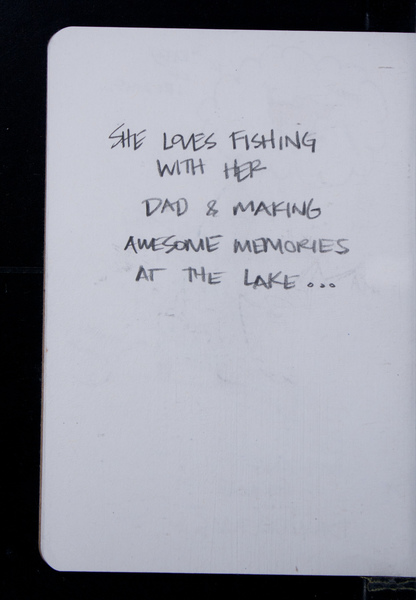 SHE LOVES FISHING
WITH HER
DAD & MAKING
AWESOME MEMORIES
AT THE LAKE...